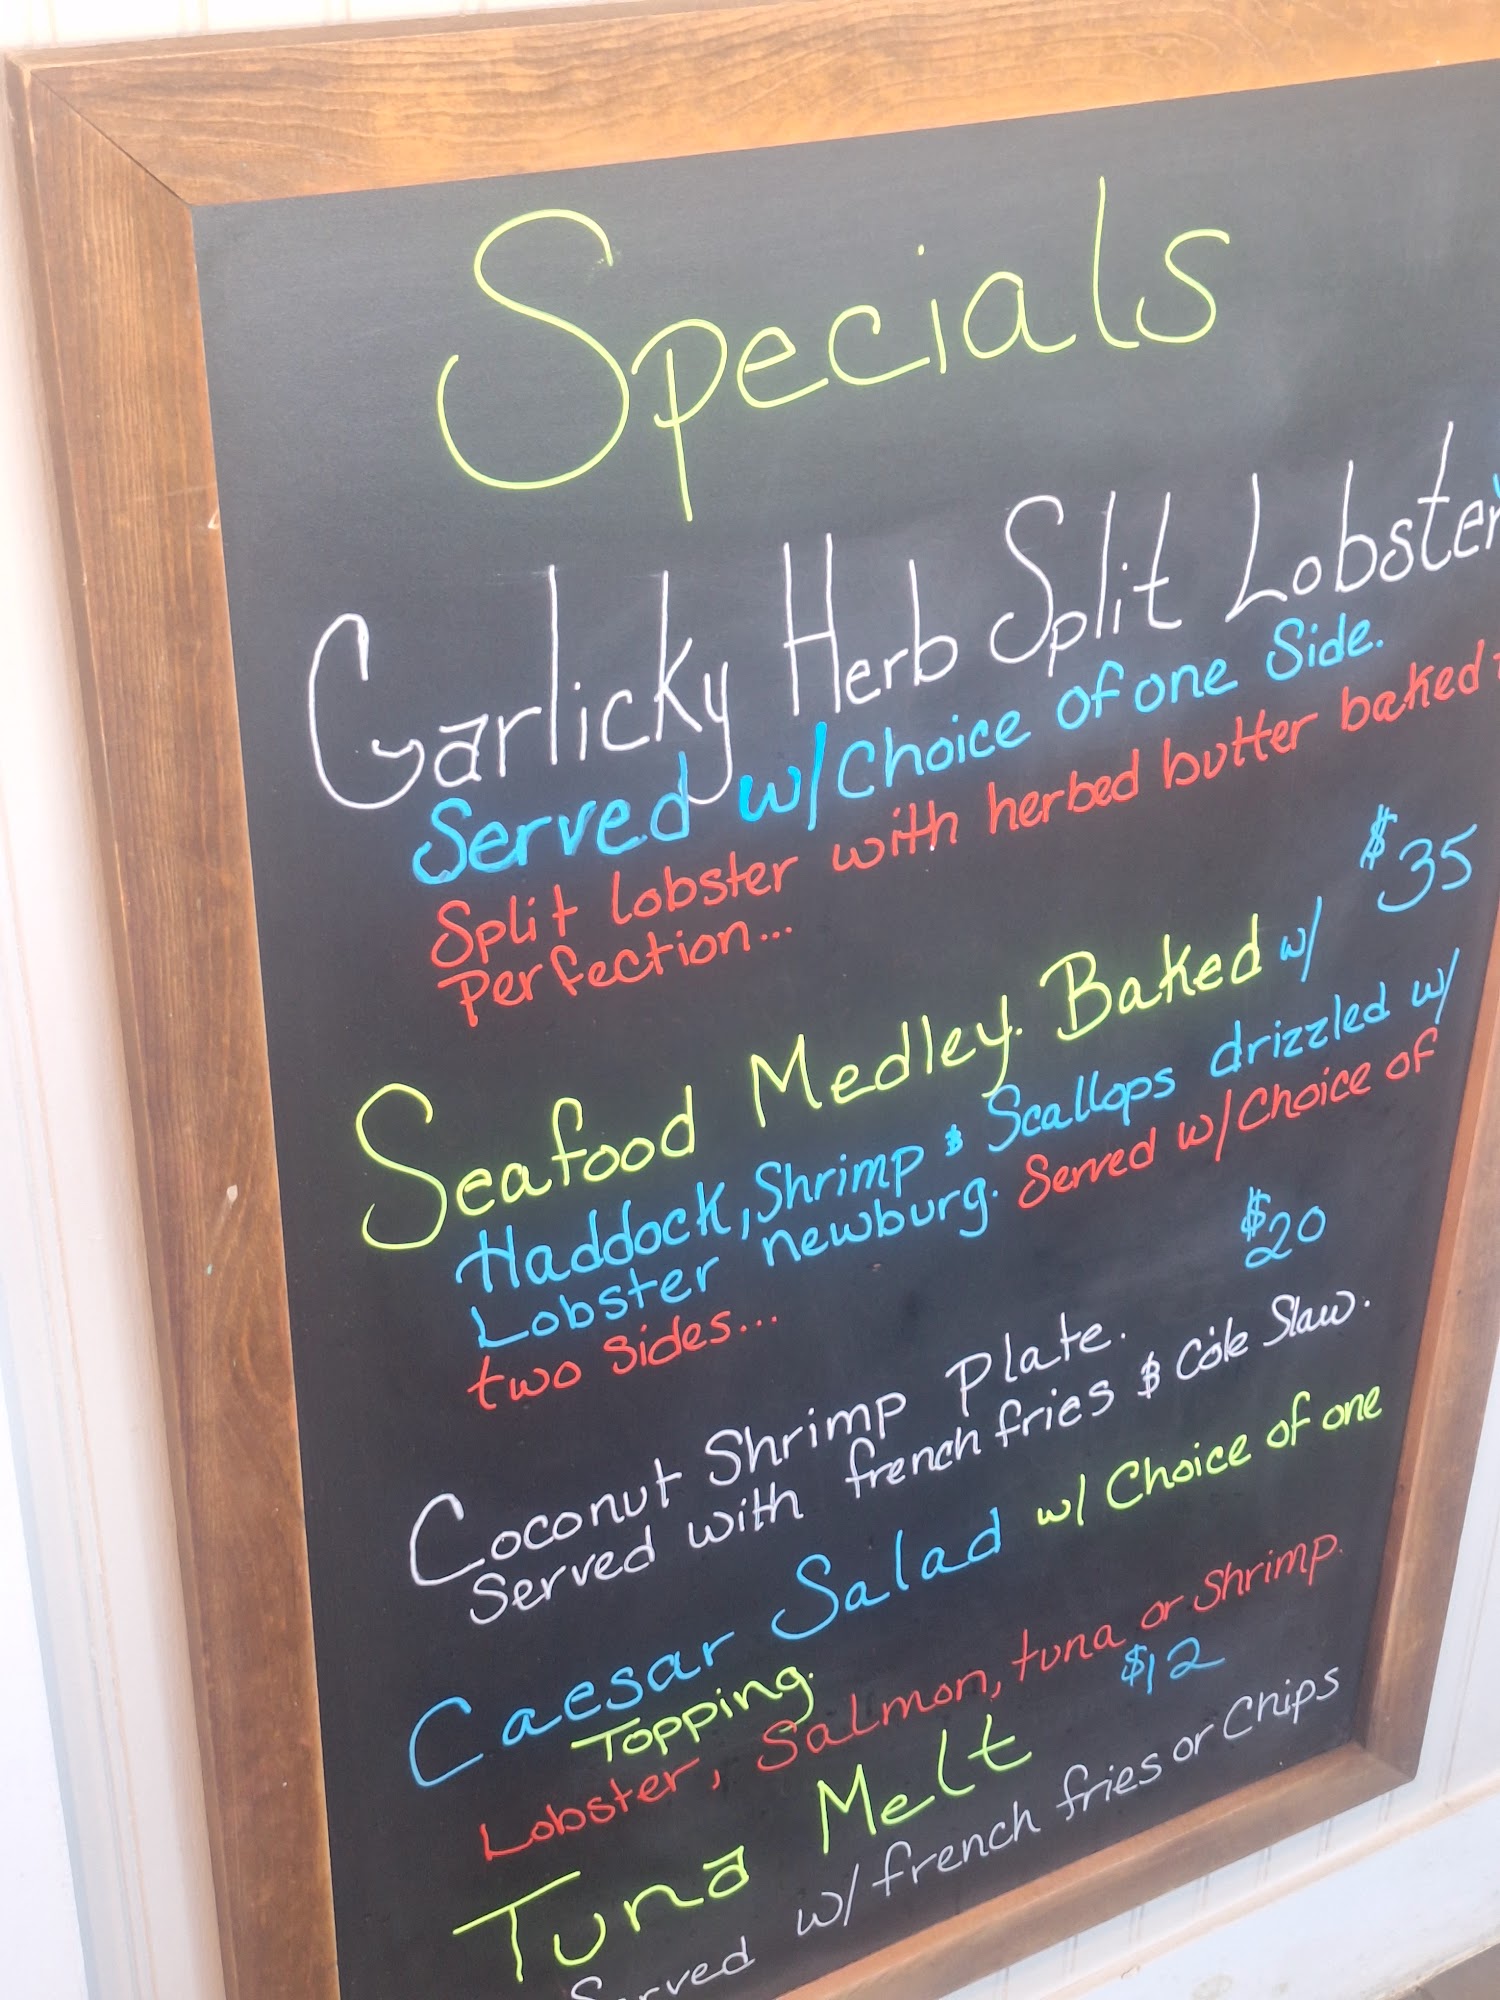 Specials
Garlicky Herb Split Lobster
Served w/ Choice of one Side.
Split lobster with herbed butter baked
Perfection...
$35
Seafood Medley. Baked w/
Haddock, Shrimp & Scallops drizzled w/
Lobster newburg. Served w/ Choice of
two sides...
$20
Coconut Shrimp Plate.
Served with french fries & Cole Slaw.
Caesar Salad w/ Choice of one
Topping.
Lobster, Salmon, tuna or Shrimp.
$12
Tuna Melt
Served w/ french fries or Chips